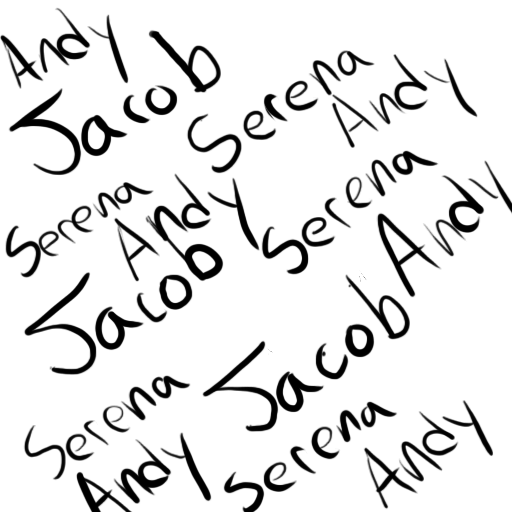 Andy
Jacob
Serena
Andy
Serena
Andy
Serena
Andy
Jacob
Jacob
Serena
Andy
Serena
Andy